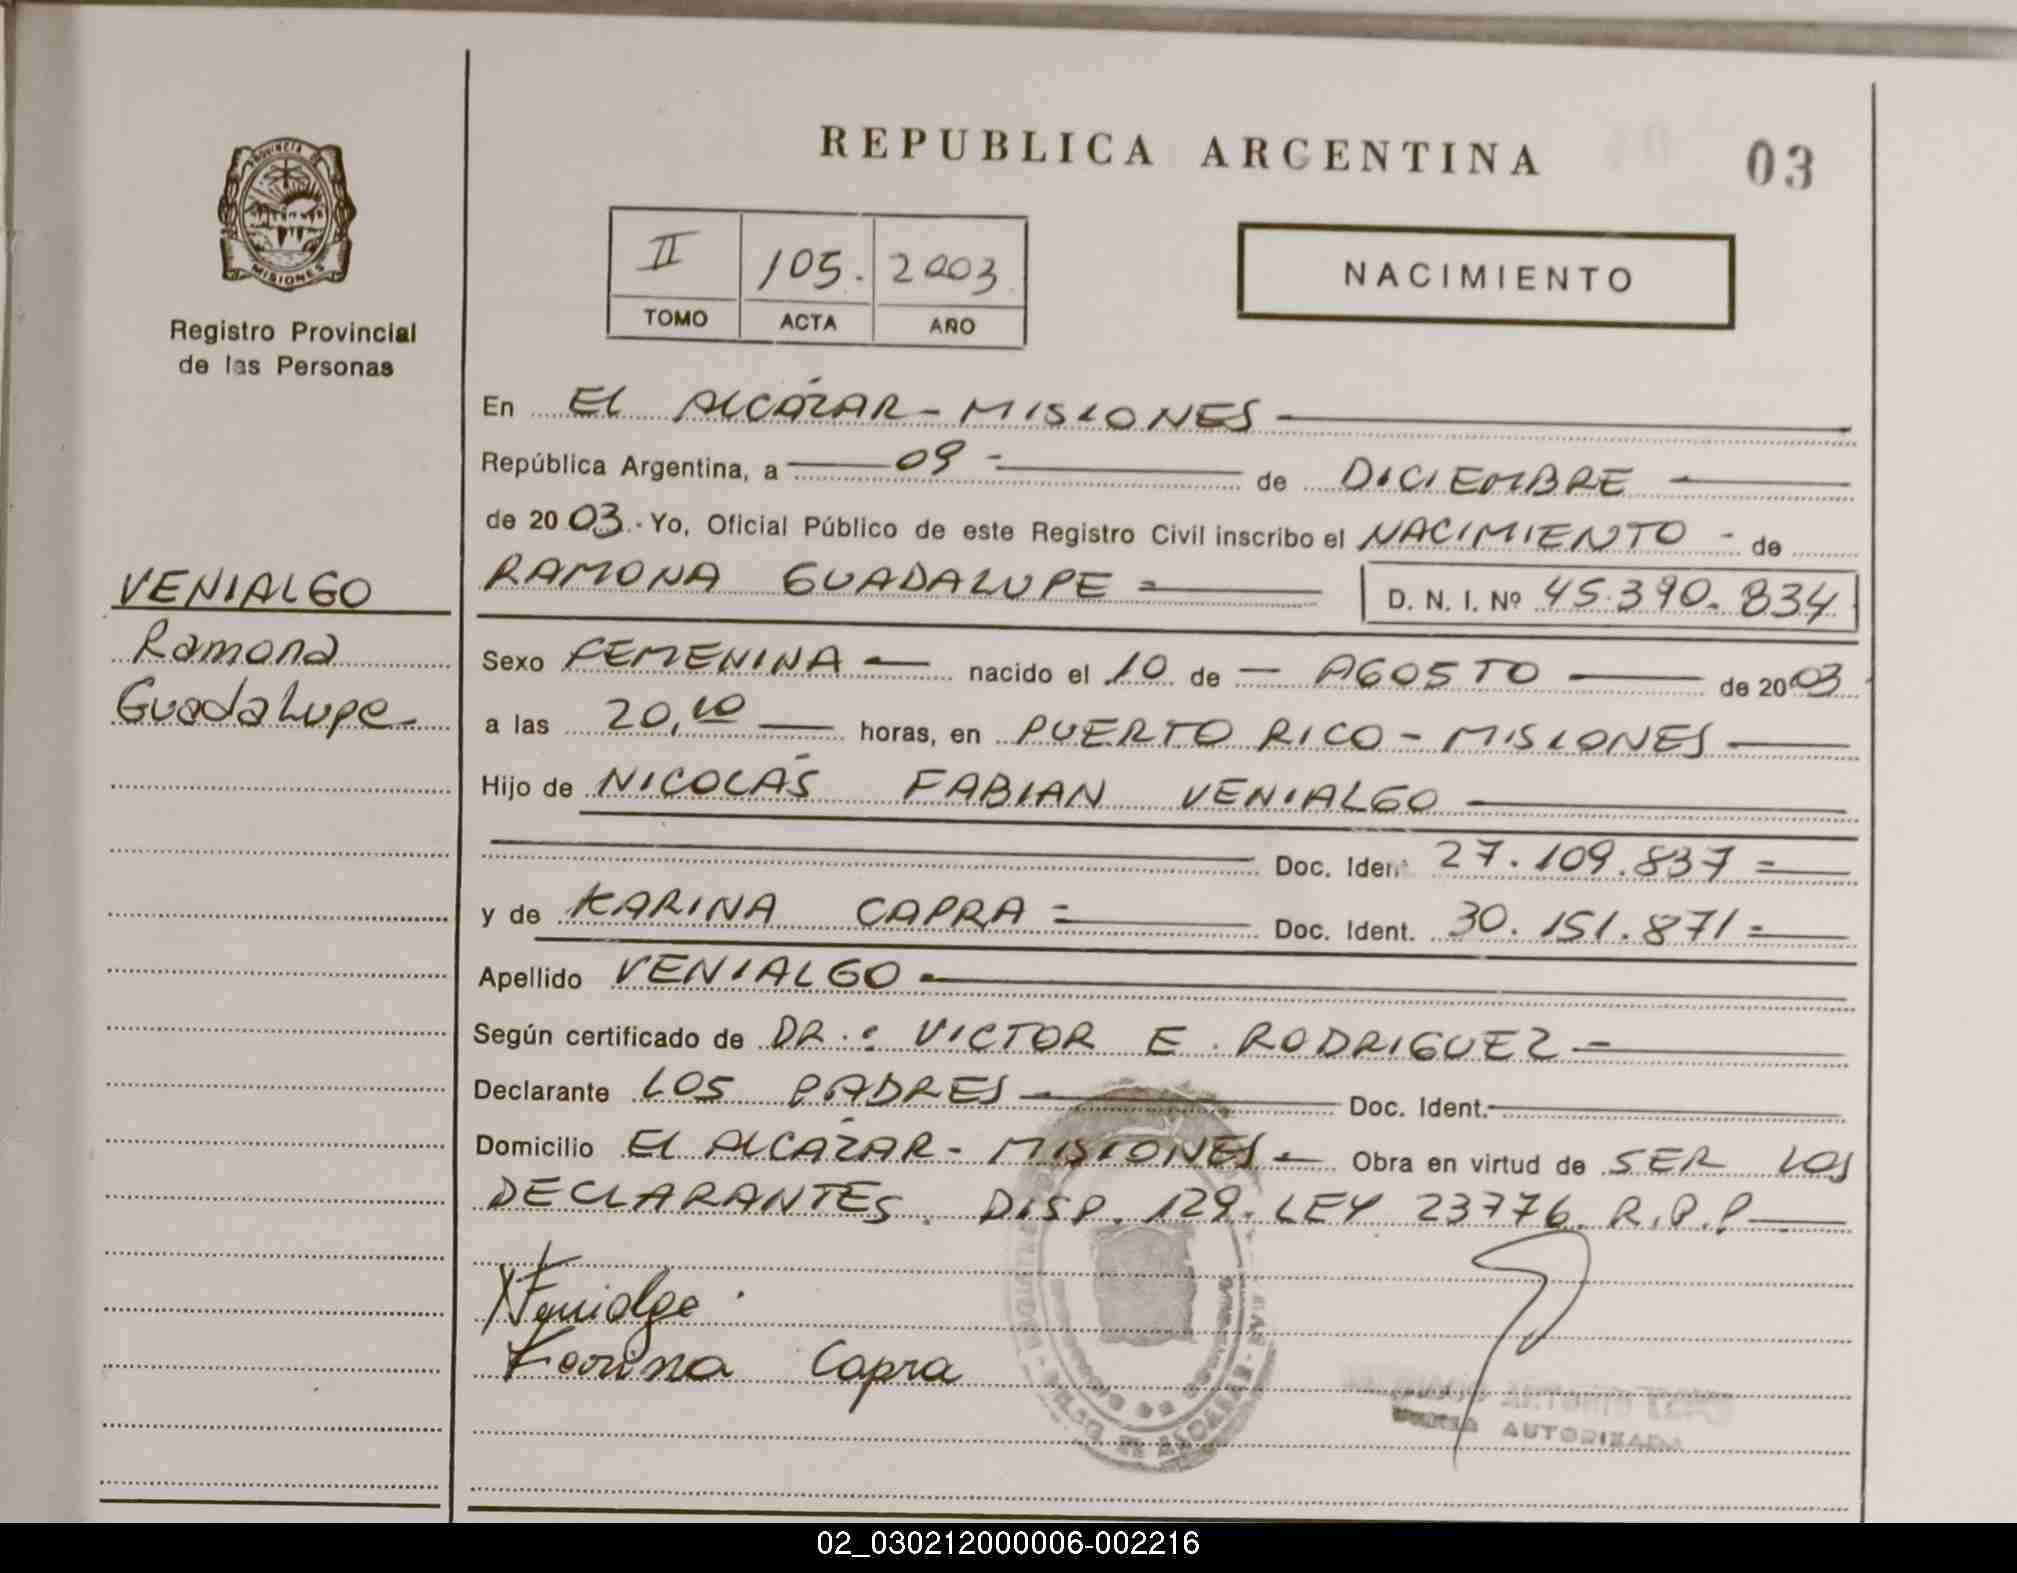 REPUBLICA ARGENTINA
03
PROVINCIA DE
MISIONES
Registro Provincial
de las Personas
II 105. 2003
TOMO ACTA AÑO
NACIMIENTO
En EL ALCÁZAR - MISIONES
República Argentina, a 09 - de DICIEMBRE
de 2003. Yo, Oficial Público de este Registro Civil inscribo el NACIMIENTO - de
RAMONA GUADALUPE = D. N. I. Nº 45.390.834
VENIALGO
Ramona
Guadalupe
Sexo FEMENINA nacido el 10 de AGOSTO de 2003
a las 20,10 horas, en PUERTO RICO - MISIONES
Hijo de NICOLÁS FABIAN VENIALGO
Doc. Ident. 27.109.837 =
y de KARINA CAPRA = Doc. Ident. 30.151.871 =
Apellido VENIALGO
Según certificado de DR.: VICTOR E. RODRIGUEZ
Declarante LOS PADRES Doc. Ident.
Domicilio EL ALCÁZAR - MISIONES Obra en virtud de SER LOS
DECLARANTES. DISP. 129. LEY 23776. R.P.P
Venialgo
Karina Capra
AUTORIZADA
02_030212000006-002216